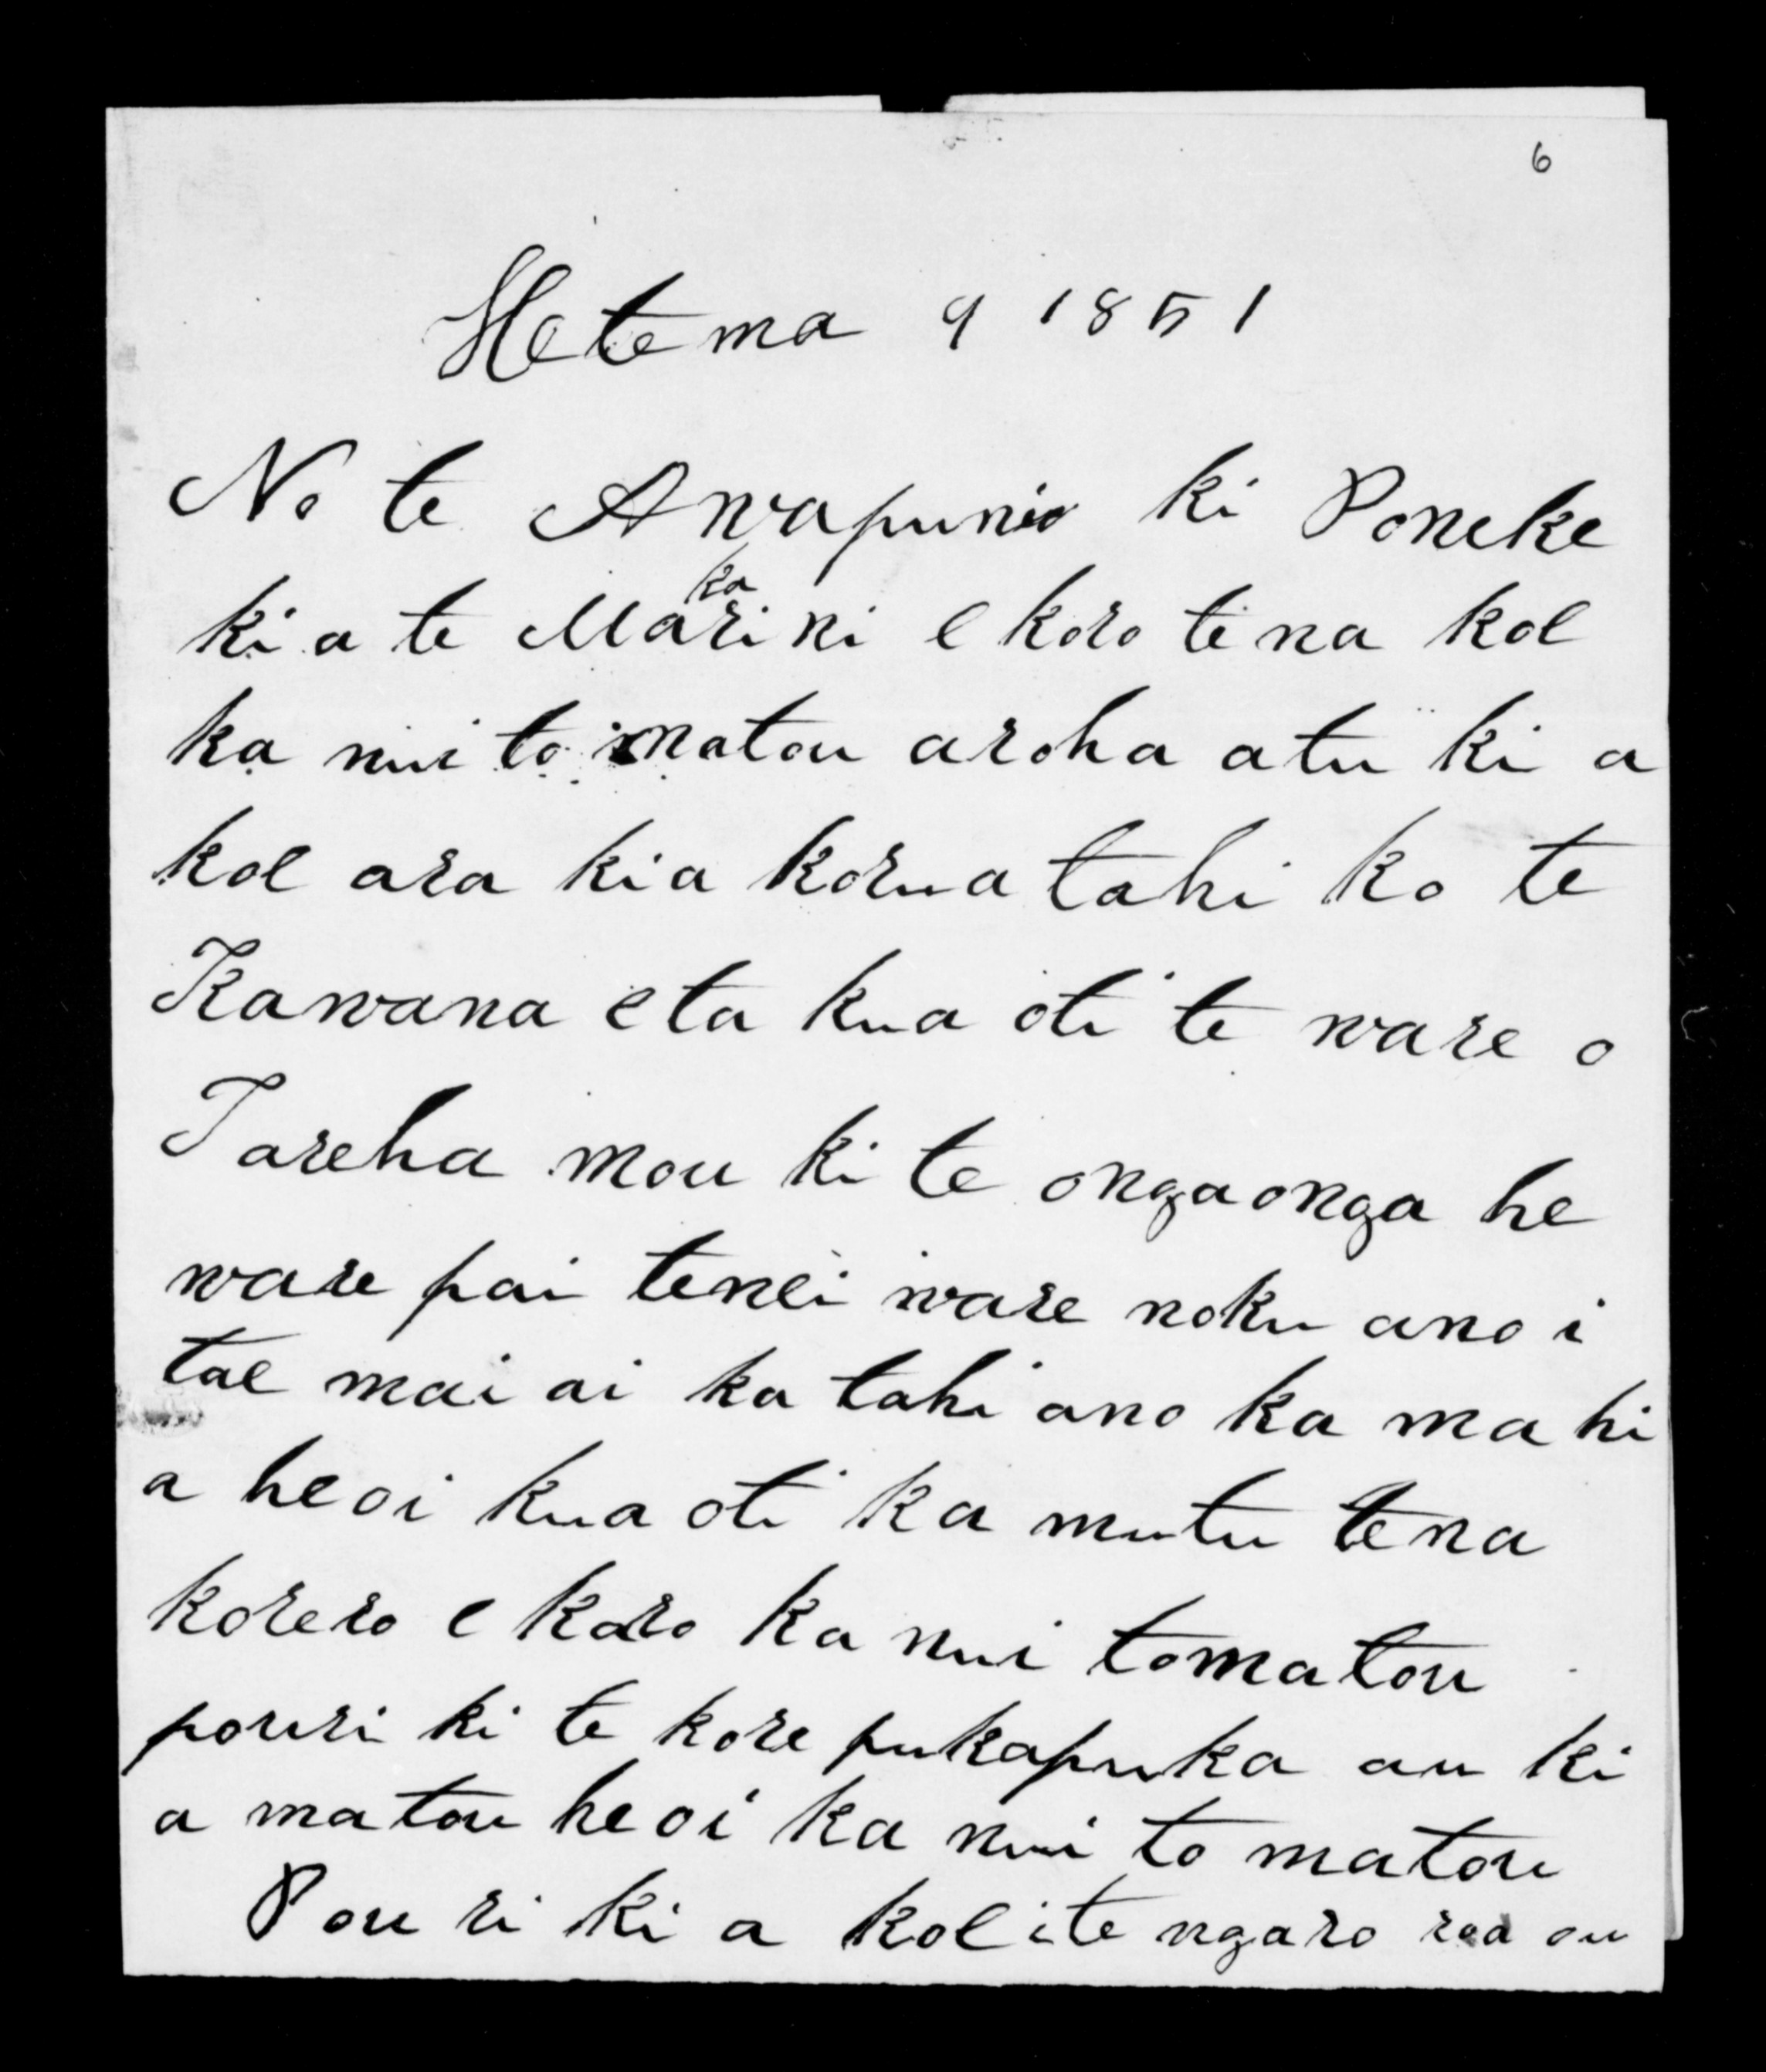 6
Hetema 9 1851
No te Awapuni ki Poneke
ki a te Makarini e koro tena koe
ka nui to matou aroha atu ki a
koe ara kia korua tahi ko te
Kawana eta kua oti te ware o
Tareha mou ki te ongaonga he
ware pai tenei ware noku ano i
tae mai ai ka tahi ano ka ma hi
a heoi kua oti ka mutu tena
korero e koro ka nui tomatou
pouri ki te kore pukapuka au ki
a matou heoi ka nui to matou
Pou ri ki a koe i te ngaro roa ou